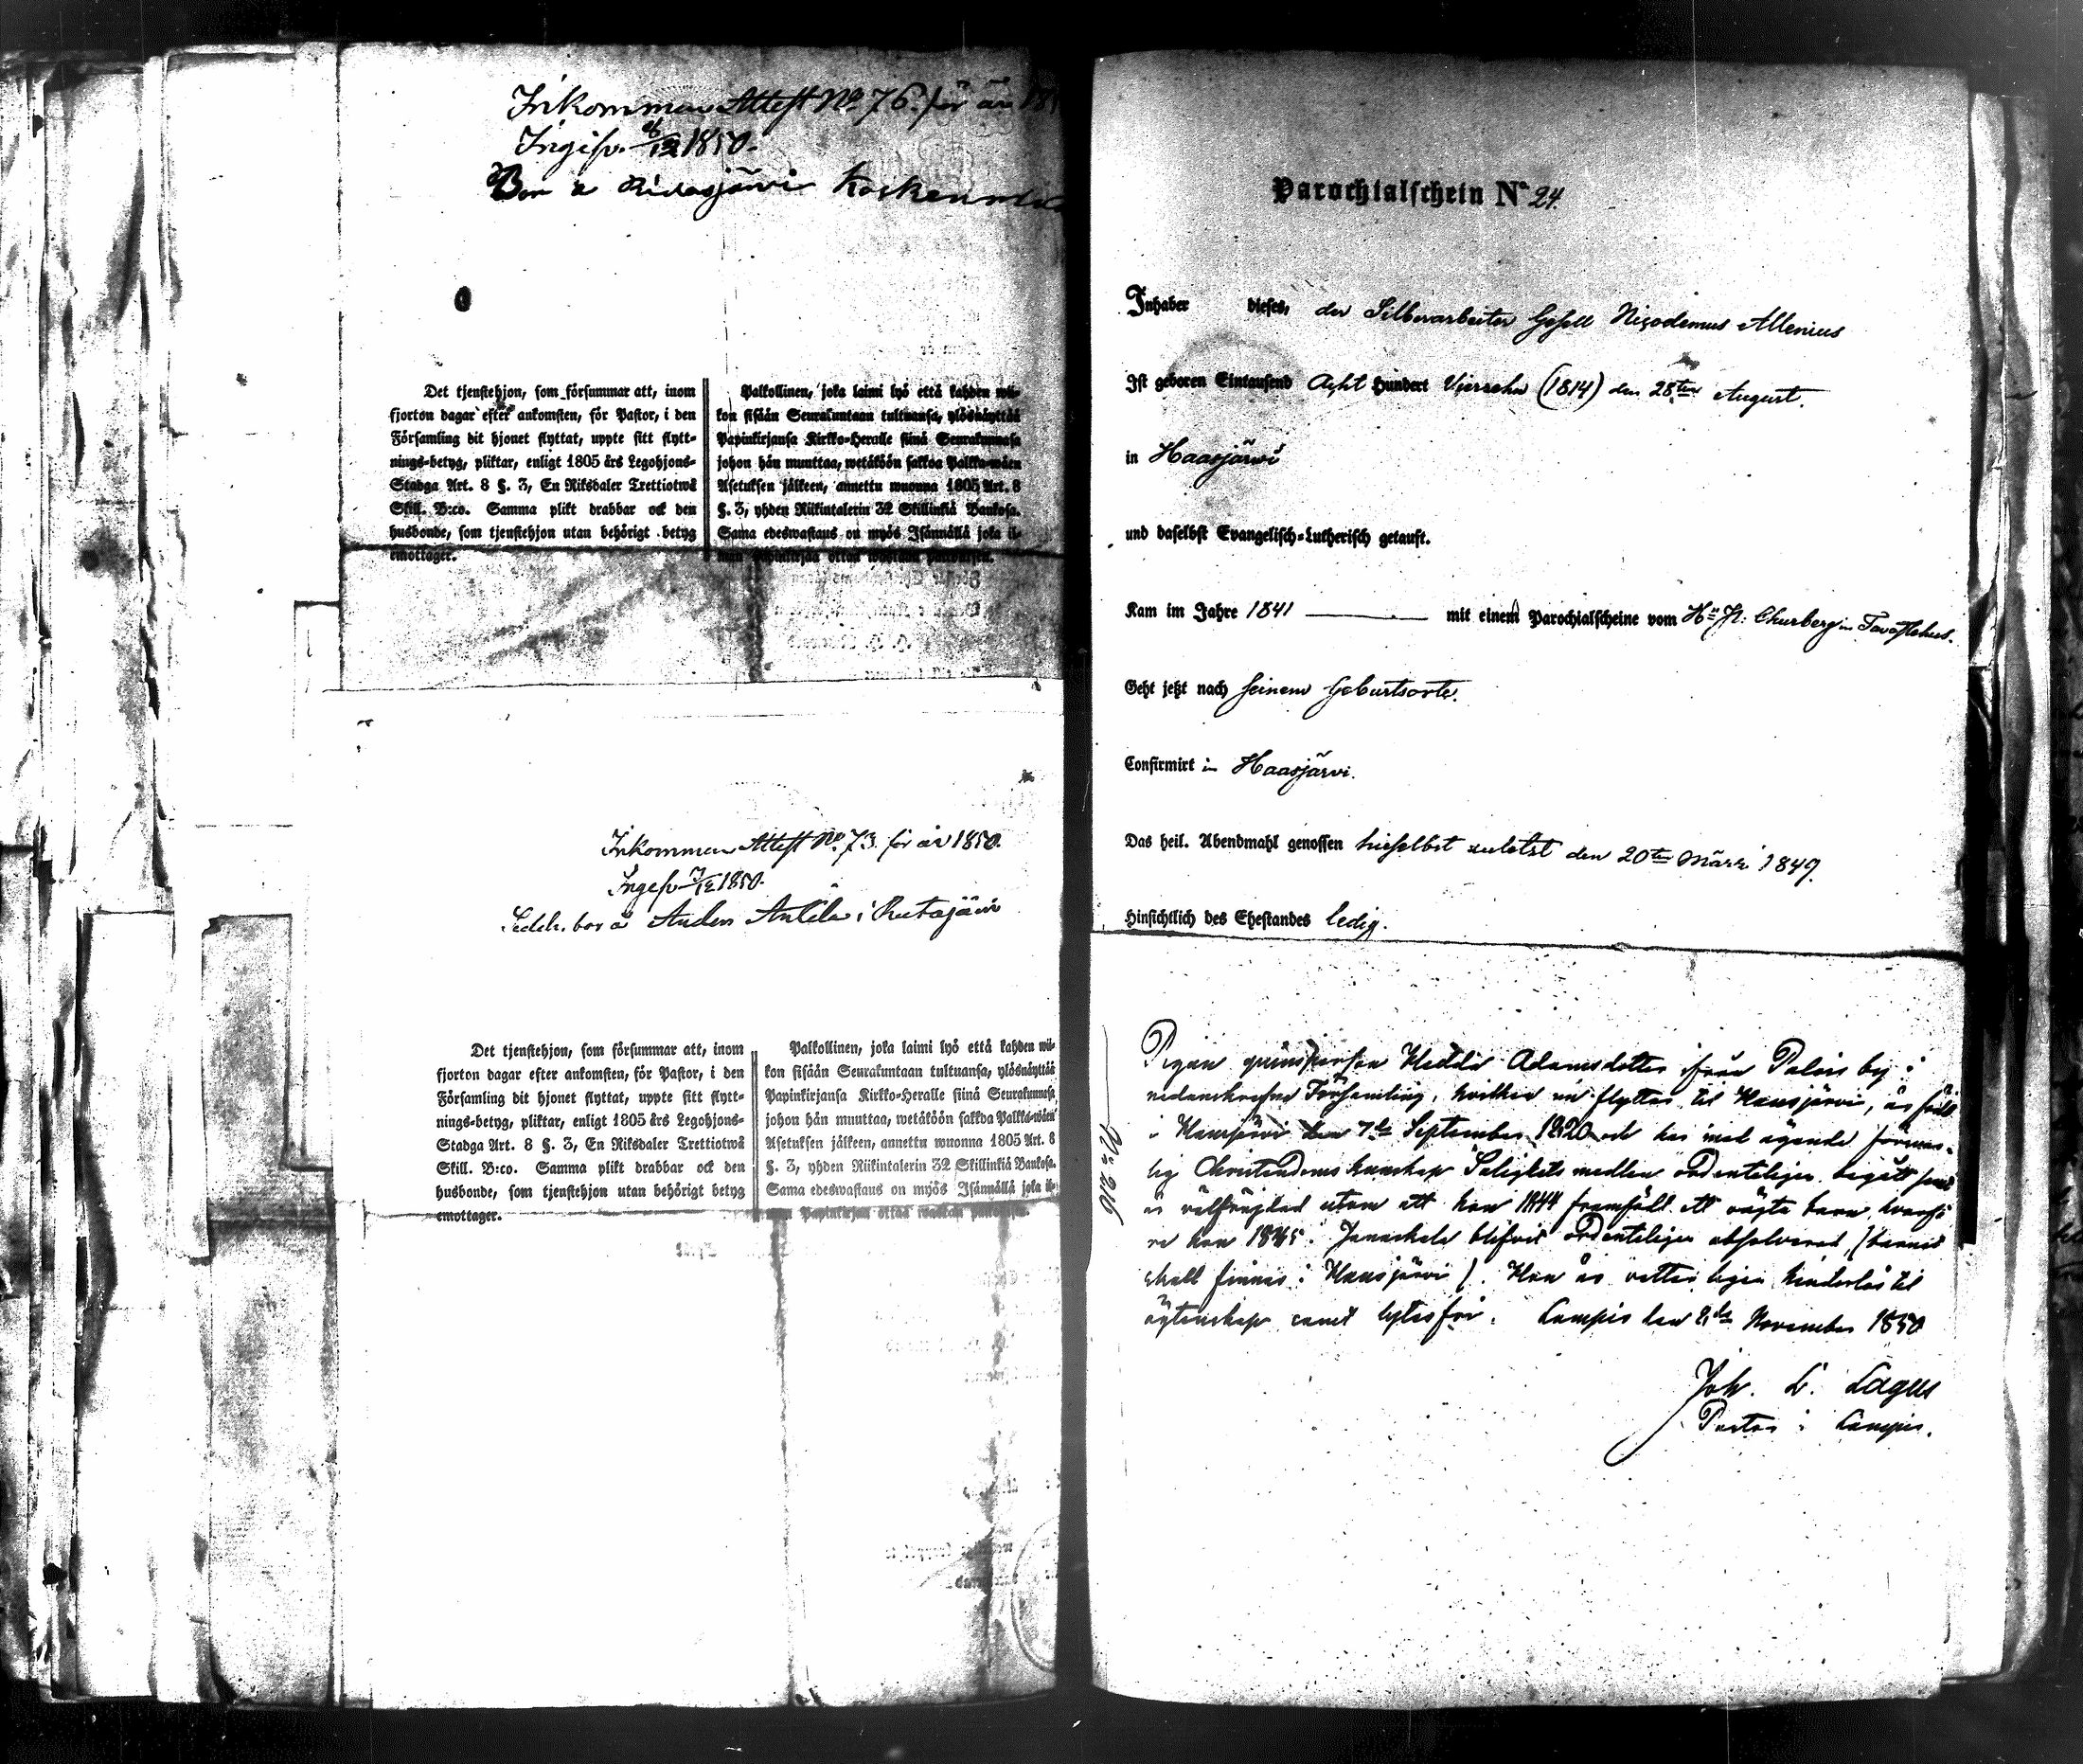 Inkommen Attest No 76. för år 18
Ingifv. 26/12 1850.
Bor å Ridasjärvi
Det tjenstehjon, som försummar att, inom
fjorton dagar efter ankomsten, för Pastor, i den
Församling dit hjonet flyttat, uppte sitt flytt-
nings-betyg, pliktar, enligt 1805 års Legohjons-
Stadga Art. 8 §. 3, En Riksdaler Trettiotwå
Skill. B:co. Samma plikt drabbar ock den
husbonde, som tjenstehjon utan behörigt betyg
emottager.
Palkollinen, joka laimi lyö että kahden wii-
kon sisään Seurakuntaan tultuansa, ylösnäyttää
Papinkirjansa Kirkko-Heralle siinä Seurakunnasa
johon hän muuttaa, wetäköön sakkoa Palkka-wäen
Asetuksen jälkeen, annettu wuonna 1805 Art. 8
§. 3, yhden Riikintalerin 32 Skillinkiä Bankosa.
Sama edeswastaus on myös Isännällä joka il-
man Papinkirjaa ottaa wastaan palkollisen.
Inkommen Attest No. 73. för år 1850.
Ingifv 7/12 1850.
bor å Anden Anttila i Rutajärvi
Det tjenstehjon, som försummar att, inom
fjorton dagar efter ankomsten, för Pastor, i den
Församling dit hjonet flyttat, uppte sitt flytt-
nings-betyg, pliktar, enligt 1805 års Legohjons-
Stadga Art. 8 §. 3, En Riksdaler Trettiotwå
Skill. B:co. Samma plikt drabbar ock den
husbonde, som tjenstehjon utan behörigt betyg
emottager.
Palkollinen, joka laimi lyö että kahden wii-
kon sisään Seurakuntaan tultuansa, ylösnäyttää
Papinkirjansa Kirkko-Heralle siinä Seurakunnasa,
johon hän muuttaa, wetäköön sakkoa Palkka-wäen
Asetuksen jälkeen, annettu wuonna 1805 Art. 8
§. 3, yhden Riikintalerin 32 Skillinkiä Bankosa.
Sama edeswastaus on myös Isännällä joka il-
man Papinkirjaa ottaa wastaan palkollisen.
Parochialschein No 24.
Inhaber dieses, der Silberarbeiter Gesell Nicodemus Allenius
Ist geboren Eintausend Acht Hundert Vierzehn (1814) den 28ten August.
in Haasjärwi
und daselbst Evangelisch-Lutherisch getauft.
Kam im Jahre 1841 mit einem Parochialscheine vom Hn P: Churberg in Tavastehus.
Geht jetzt nach seinem Geburtsorte.
Confirmirt in Haasjärvi.
Das heil. Abendmahl genossen hieselbst zuletzt den 20ten März 1849.
Hinsichtlich des Ehestandes ledig.
No 216
Pigan qvinsperson Hedda Adamsdotter ifrån Palois by i
nedanskrefne Församling, hvilken nu flyttar til Hausjärvi, är född
i Hausjärvi den 7de September 1820 och har med ägande försvar-
lig Christendoms kunskap Salighets medlen ordenteligen begått samt
är välfrägdad utom att hon 1844 framfödt ett oägta barn, hvarfö
re hon 1845 i Janakkala blifvit ordenteligen absolverad, (barnet
skall finnas i Hausjärvi). Hon är hinderlös til
ägtenskap samt lytesfri. Lampis den 2de November 1850
Joh. L. Lagus
Pastor i Lampis.